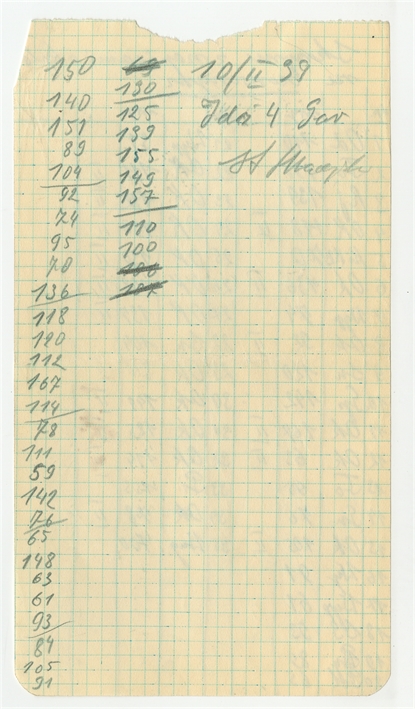 150
140
151
89
104
92
74
95
70
136
118
120
112
167
114
78
111
59
142
76
65
148
63
61
93
84
105
91
69
130
125
139
155
149
157
110
100
10/II 39